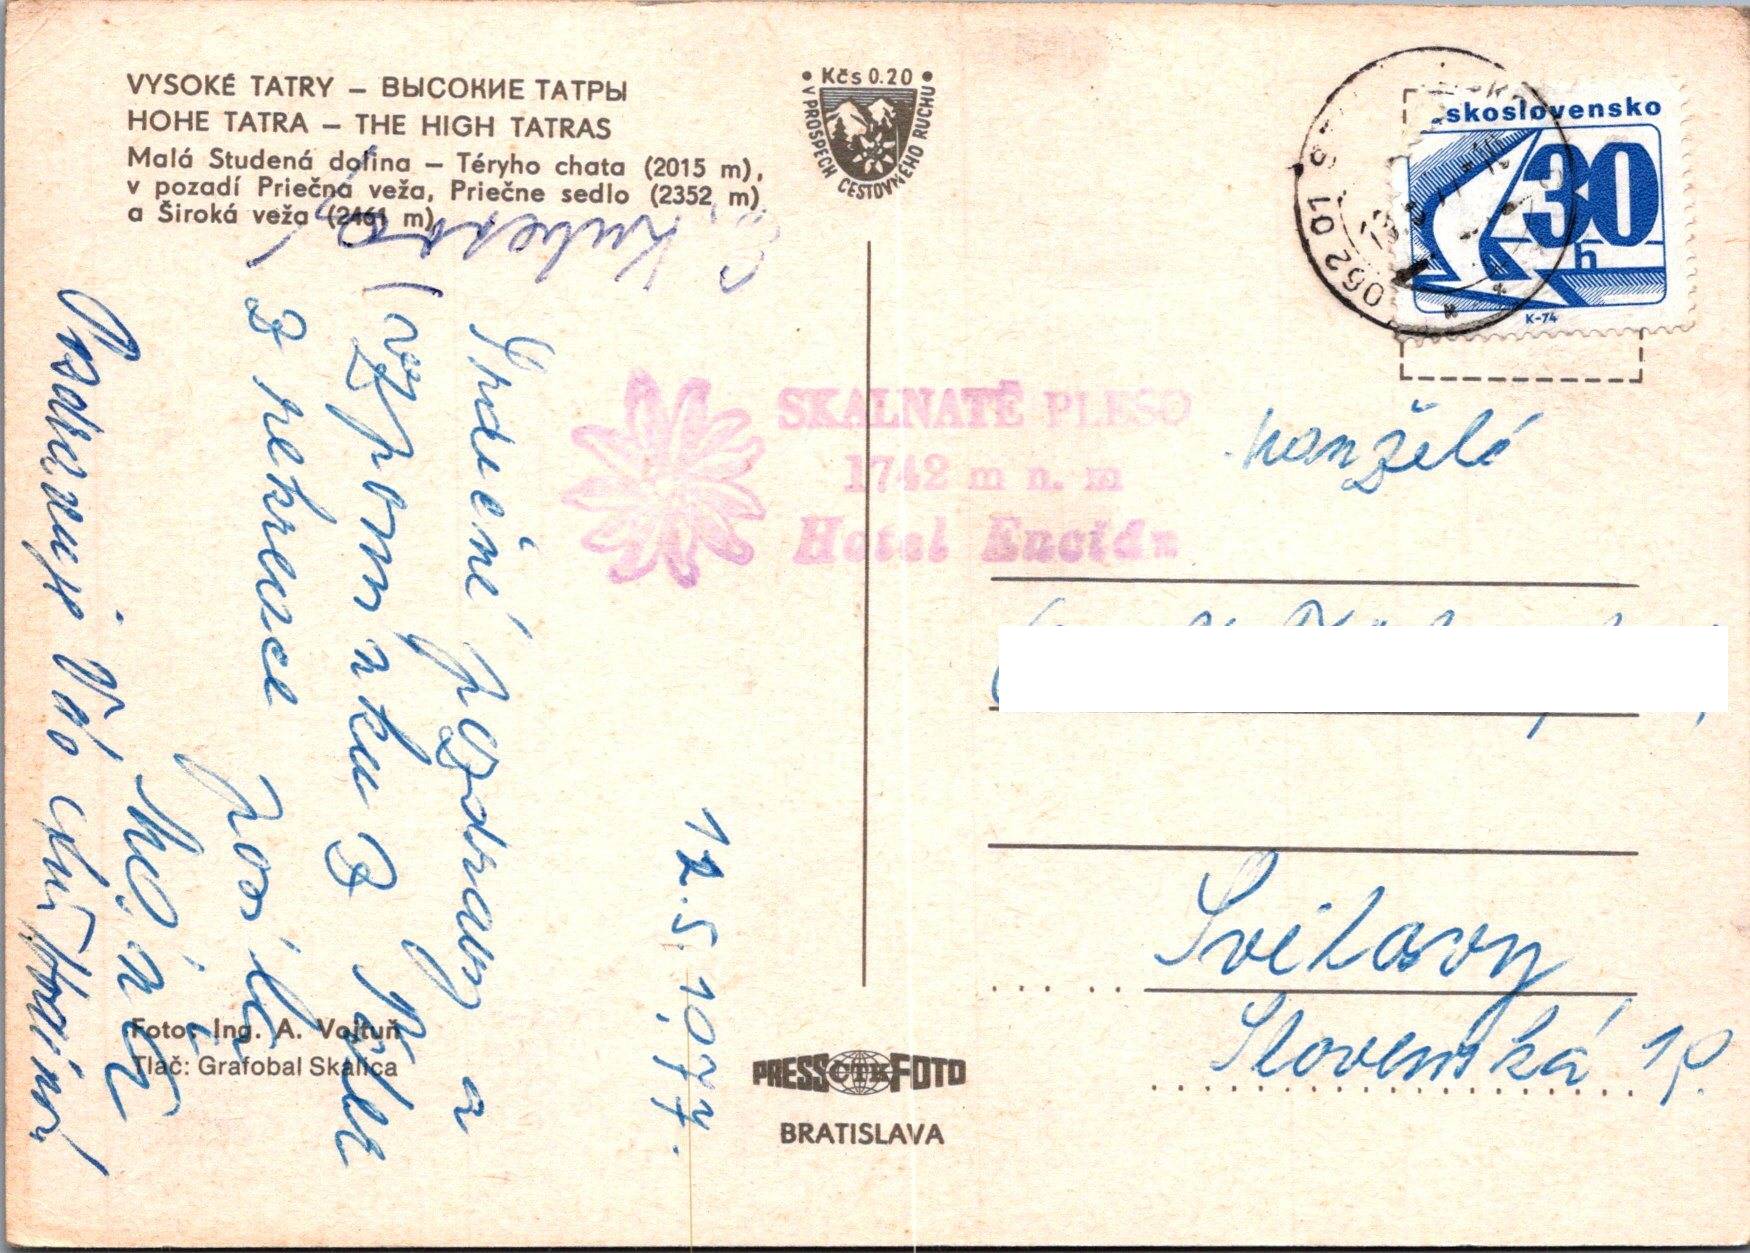 VYSOKÉ TATRY – ВЫСОКИЕ ТАТРЫ
HOHE TATRA – THE HIGH TATRAS
Malá Studená dolina – Téryho chata (2015 m),
v pozadí Priečna veža, Priečne sedlo (2352 m)
a Široká veža (2461 m)
• Kčs 0.20 •
V PROSPECH CESTOVNÉHO RUCHU
skoslovensko
30
h
K-74
062 01
SKALNATÉ PLESO
1742 m n. m
Hotel Encián
12.5.1977.
Srdečné pozdravy a
vzpomínku z
z rekreace posílá
Pozdravuje Vás
manželé
Svitavy
Slovenská
Foto: Ing. A. Vojtuň
Tlač: Grafobal Skalica
PRESS ČTK FOTO
BRATISLAVA